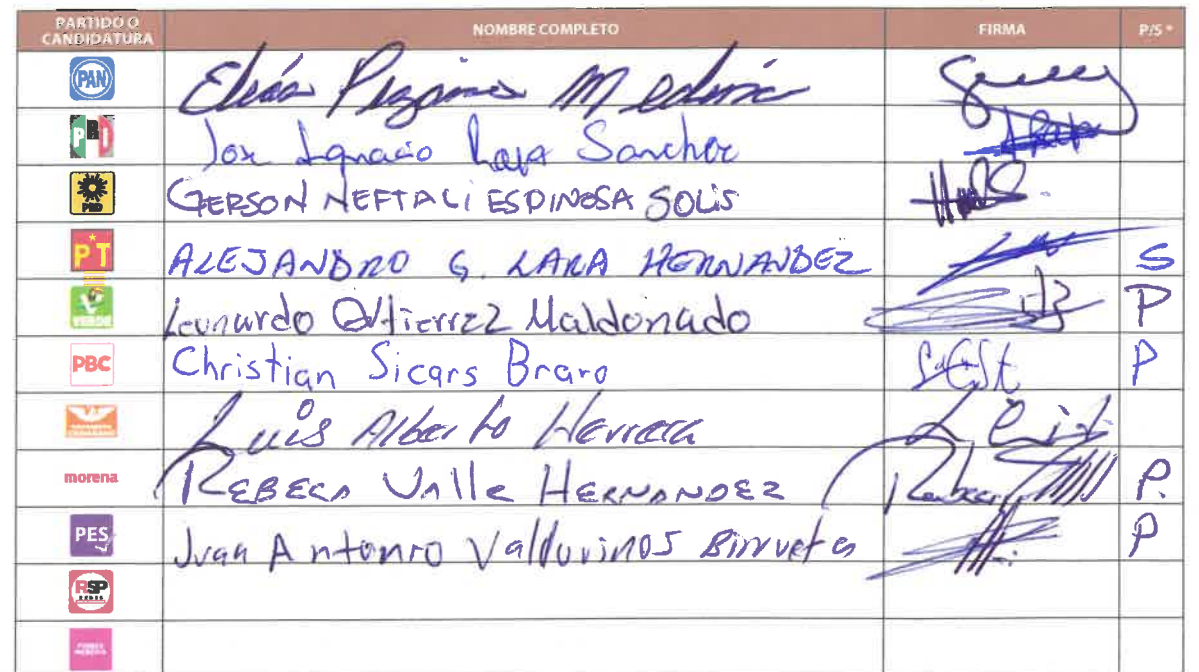 PARTIDO O CANDIDATURA NOMBRE COMPLETO FIRMA P/S *
PAN Elías Medina
PRI Jose Ignacio Sanchez
PRD GERSON NEFTALI ESPINOSA SOLIS
PT ALEJANDRO G. LARA HERNANDEZ S
VERDE Leonardo Gutierrez Maldonado P
PBC Christian Sicars Bravo P
MOVIMIENTO CIUDADANO Luis Alberto Herrera
morena REBECA Valle HERNANDEZ P.
PES Juan Antonio Valdovinos Birrueta P
RSP REDES
FUERZA MÉXICO